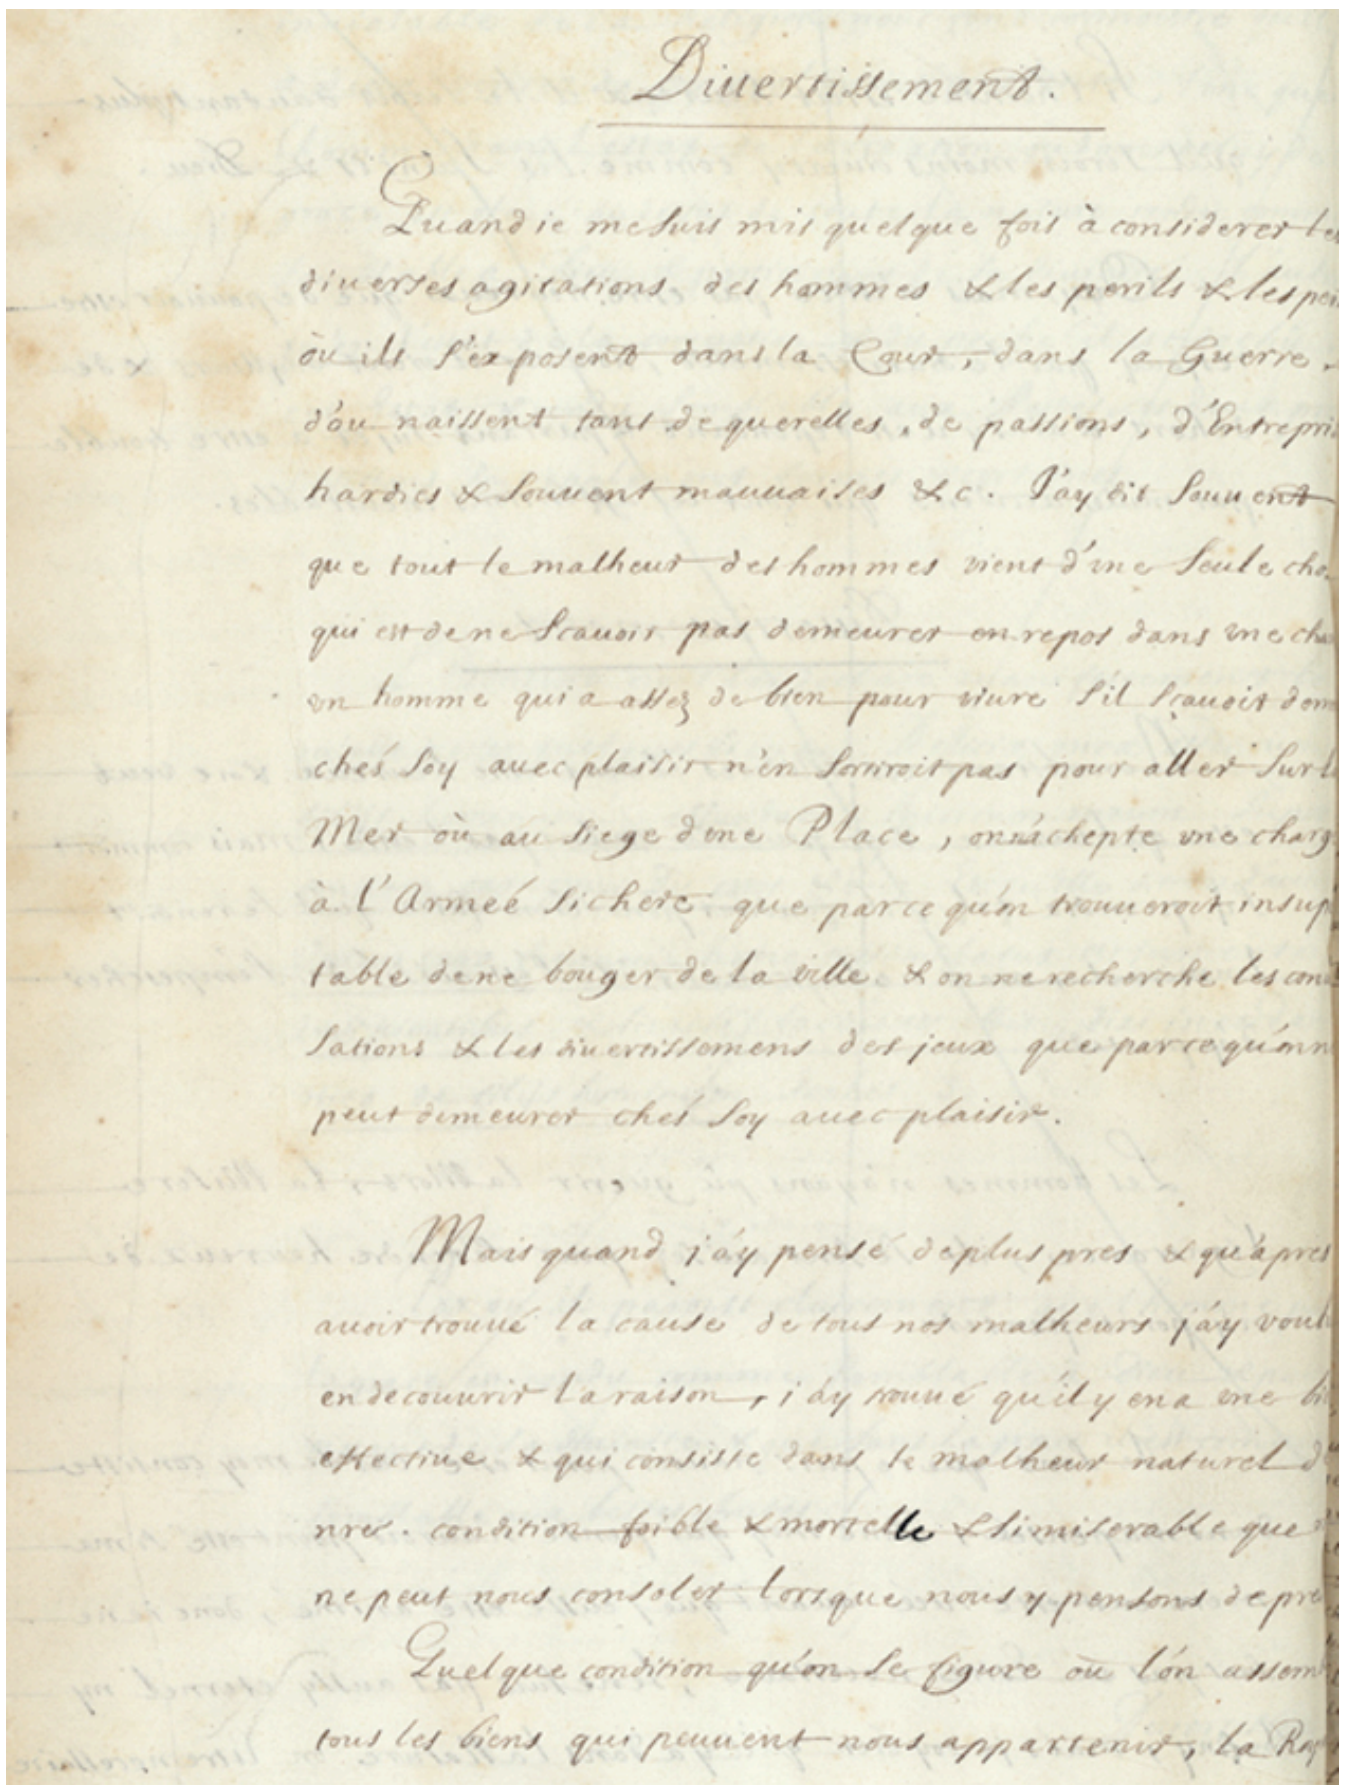 Diuertissement.
Quand ie me suis mis quelque fois à considerer les
diuerses agitations des hommes & les perils & les pei
où ils s'exposent dans la Cour, dans la Guerre,
d'ou naissent tant de querelles, de passions, d'Entrepri
hardies & souuent mauuaises &c. J'ay dit souuent
que tout le malheur des hommes vient d'vne seule cho
qui est de ne scauoir pas demeurer en repos dans vne cha
vn homme qui a assez de bien pour viure s'il sçauoit dem
chés soy auec plaisir n'en sortiroit pas pour aller sur la
Mer où au siege d'vne Place, on n'achepte vne charg
à l'Armeé si chere que parce qu'on trouueroit insup
table de ne bouger de la ville & on ne recherche les con
sations & les diuertissemens des jeux que parce qu'on n
peut demeurer chés soy auec plaisir.
Mais quand j'ay pensé de plus pres & qu'apres
auoir trouué la cause de tous nos malheurs j'ay voul
en decouurir la raison, j'ay trouué qu'il y en a vne bi
effectiue & qui consiste dans le malheur naturel d
nre. condition foible & mortelle & si miserable que
ne peut nous consoler lorsque nous y pensons de pre
Quelque condition qu'on se figure où l'on assem
tous les biens qui peuuent nous appartenir, la Roy